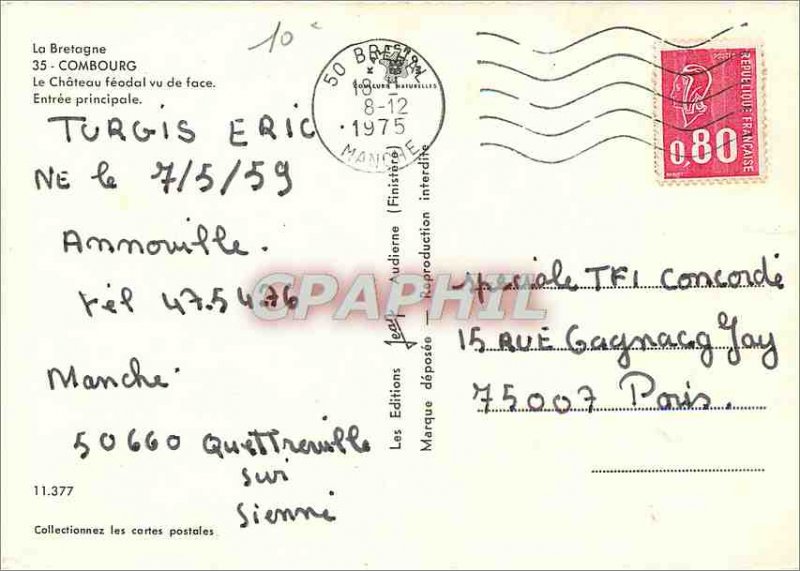 10€
La Bretagne
35 - COMBOURG
Le Château féodal vu de face.
Entrée principale.
TURGIS ERIC
NE le 7/5/59
Annouille.
tél 47.54.76
Manche.
50660 Quettreville
sur
Sienne
11.377
Collectionnez les cartes postales
Les Editions Jean Audierne (Finistère)
Marque déposée — Reproduction interdite
COULEURS NATURELLES
50
18
8-12
1975
MANCHE
REPUBLIQUE FRANÇAISE
0,80
CPAPHIL
spéciale TF1 Concorde
15 RUE Cagnacq Jay
75007 Paris.